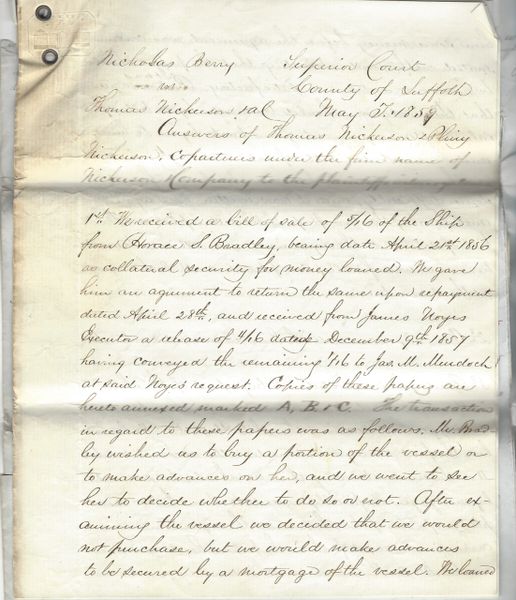 Nicholas Berry Superior Court
vs. County of Suffolk
Thomas Nickerson & al May T. 1859
Answers of Thomas Nickerson & Pliny
Nickerson, Copartners under the firm name of
Nickerson & Company to the plaintiffs
1st. We received a bill of sale of 5/16 of the Ship
from Horace S. Bradley, bearing date April 21st. 1856
as collateral security for money loaned. We gave
him an agument to return the same upon repayment
dated April 28th, and received from James Noyes
Executor a release of 4/16 dated December 9th. 1857
having conveyed the remaining 1/16 to Jas. M. Murdoch
at said Noyes request. Copies of these papers are
hereto annexed marked A, B & C. The transaction
in regard to these papers was as follows. Mr. Brad-
ley wished us to buy a portion of the vessel or
to make advances on her, and we went to see
her to decide whether to do so or not. After ex-
amining the vessel we decided that we would
not purchase, but we would make advances
to be secured by a mortgage of the vessel. We loaned